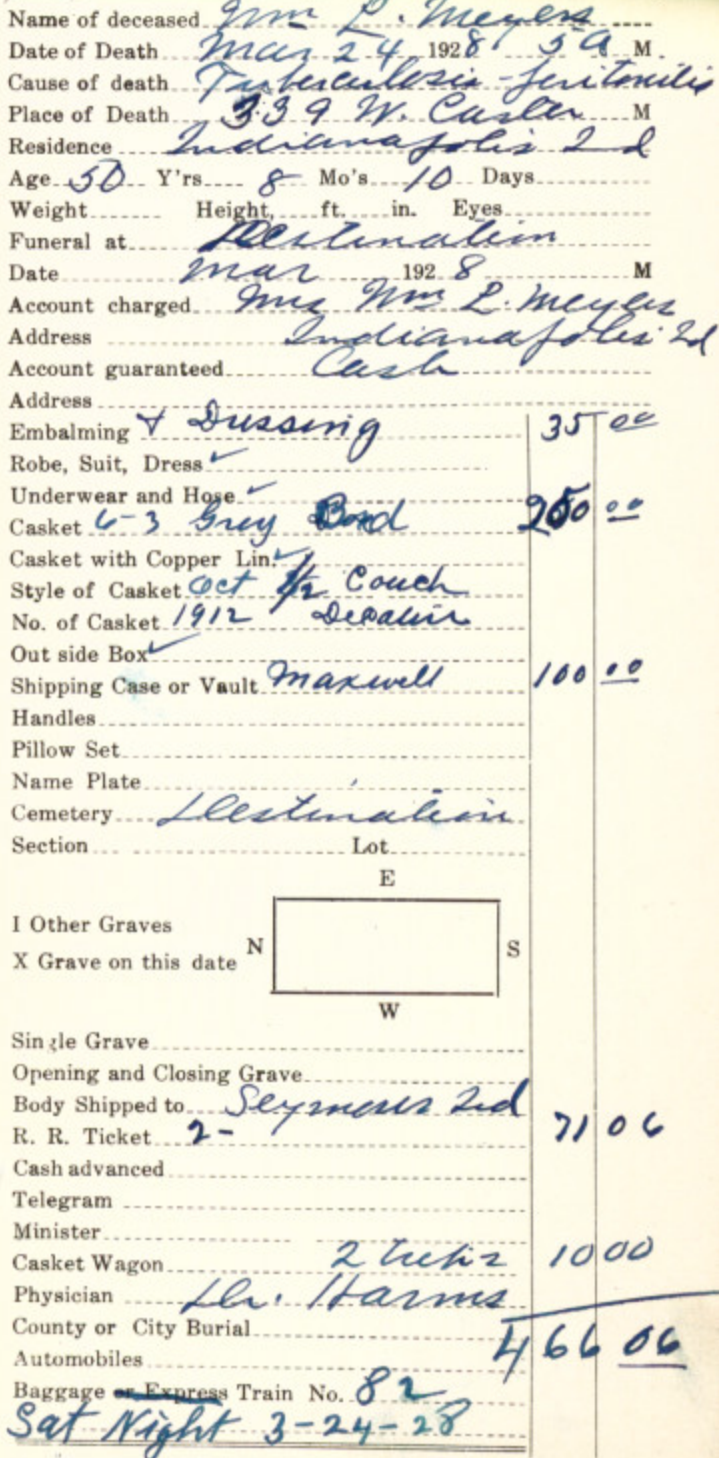 Name of deceased Wm L. Meyers
Date of Death Mar 24 1928 5 A M.
Cause of death Tuberculosis - Peritonitis
Place of Death 339 W. M
Residence Indianapolis Ind
Age 50 Y'rs 8 Mo's 10 Days
Weight Height, ft. in. Eyes
Funeral at Destination
Date Mar 1928 M
Account charged Mrs Wm L. Meyers
Address Indianapolis Ind
Account guaranteed Cash
Address
Embalming & Dressing 35 00
Robe, Suit, Dress ✓
Underwear and Hose ✓
Casket 6-3 Grey 250 00
Casket with Copper Lin. ✓
Style of Casket Oct 1/2 Couch
No. of Casket 1912
Out side Box ✓
Shipping Case or Vault Maxwell 100 00
Handles
Pillow Set
Name Plate
Cemetery Destination
Section Lot
E
I Other Graves
N S
X Grave on this date
W
Single Grave
Opening and Closing Grave
Body Shipped to Seymour Ind
R. R. Ticket 2- 71 06
Cash advanced
Telegram
Minister
Casket Wagon 2 10 00
Physician Dr. Harms
County or City Burial 466 06
Automobiles
Baggage or Express Train No. 82
Sat Night 3-24-28